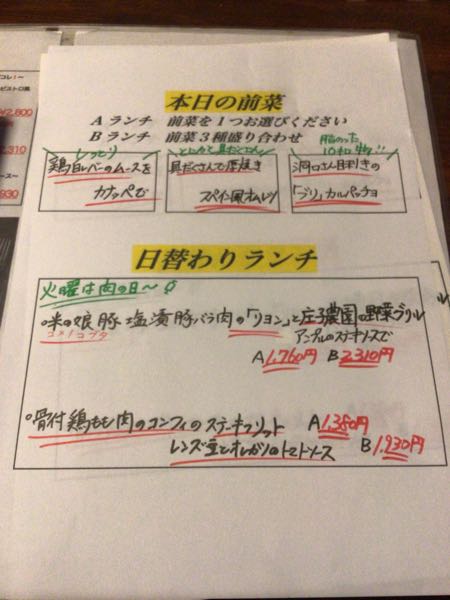 コレ！〜
ビストロ風
¥2,800
,310
ース〜
930
本日の前菜
Aランチ 前菜を1つお選びください
Bランチ 前菜3種盛り合わせ
しっとり
鶏白レバーのムースを
カナッペで
とにかく具だくさん
具だくさんで厚焼き
スペイン風オムレツ
脂のった
10キロ物!!
洞口さん目利きの
「ブリ」カルパッチョ
日替わりランチ
火曜は肉の日〜
○米の娘豚 塩漬豚バラ肉の「リヨン」と庄子農園の野菜グリル
コメノコブタ
アンチョビのステーキソースで
A1,760円 B2,310円
○骨付鶏もも肉のコンフィのステーキフリット A1,380円
レンズ豆とオレガノのトマトソース B1,930円